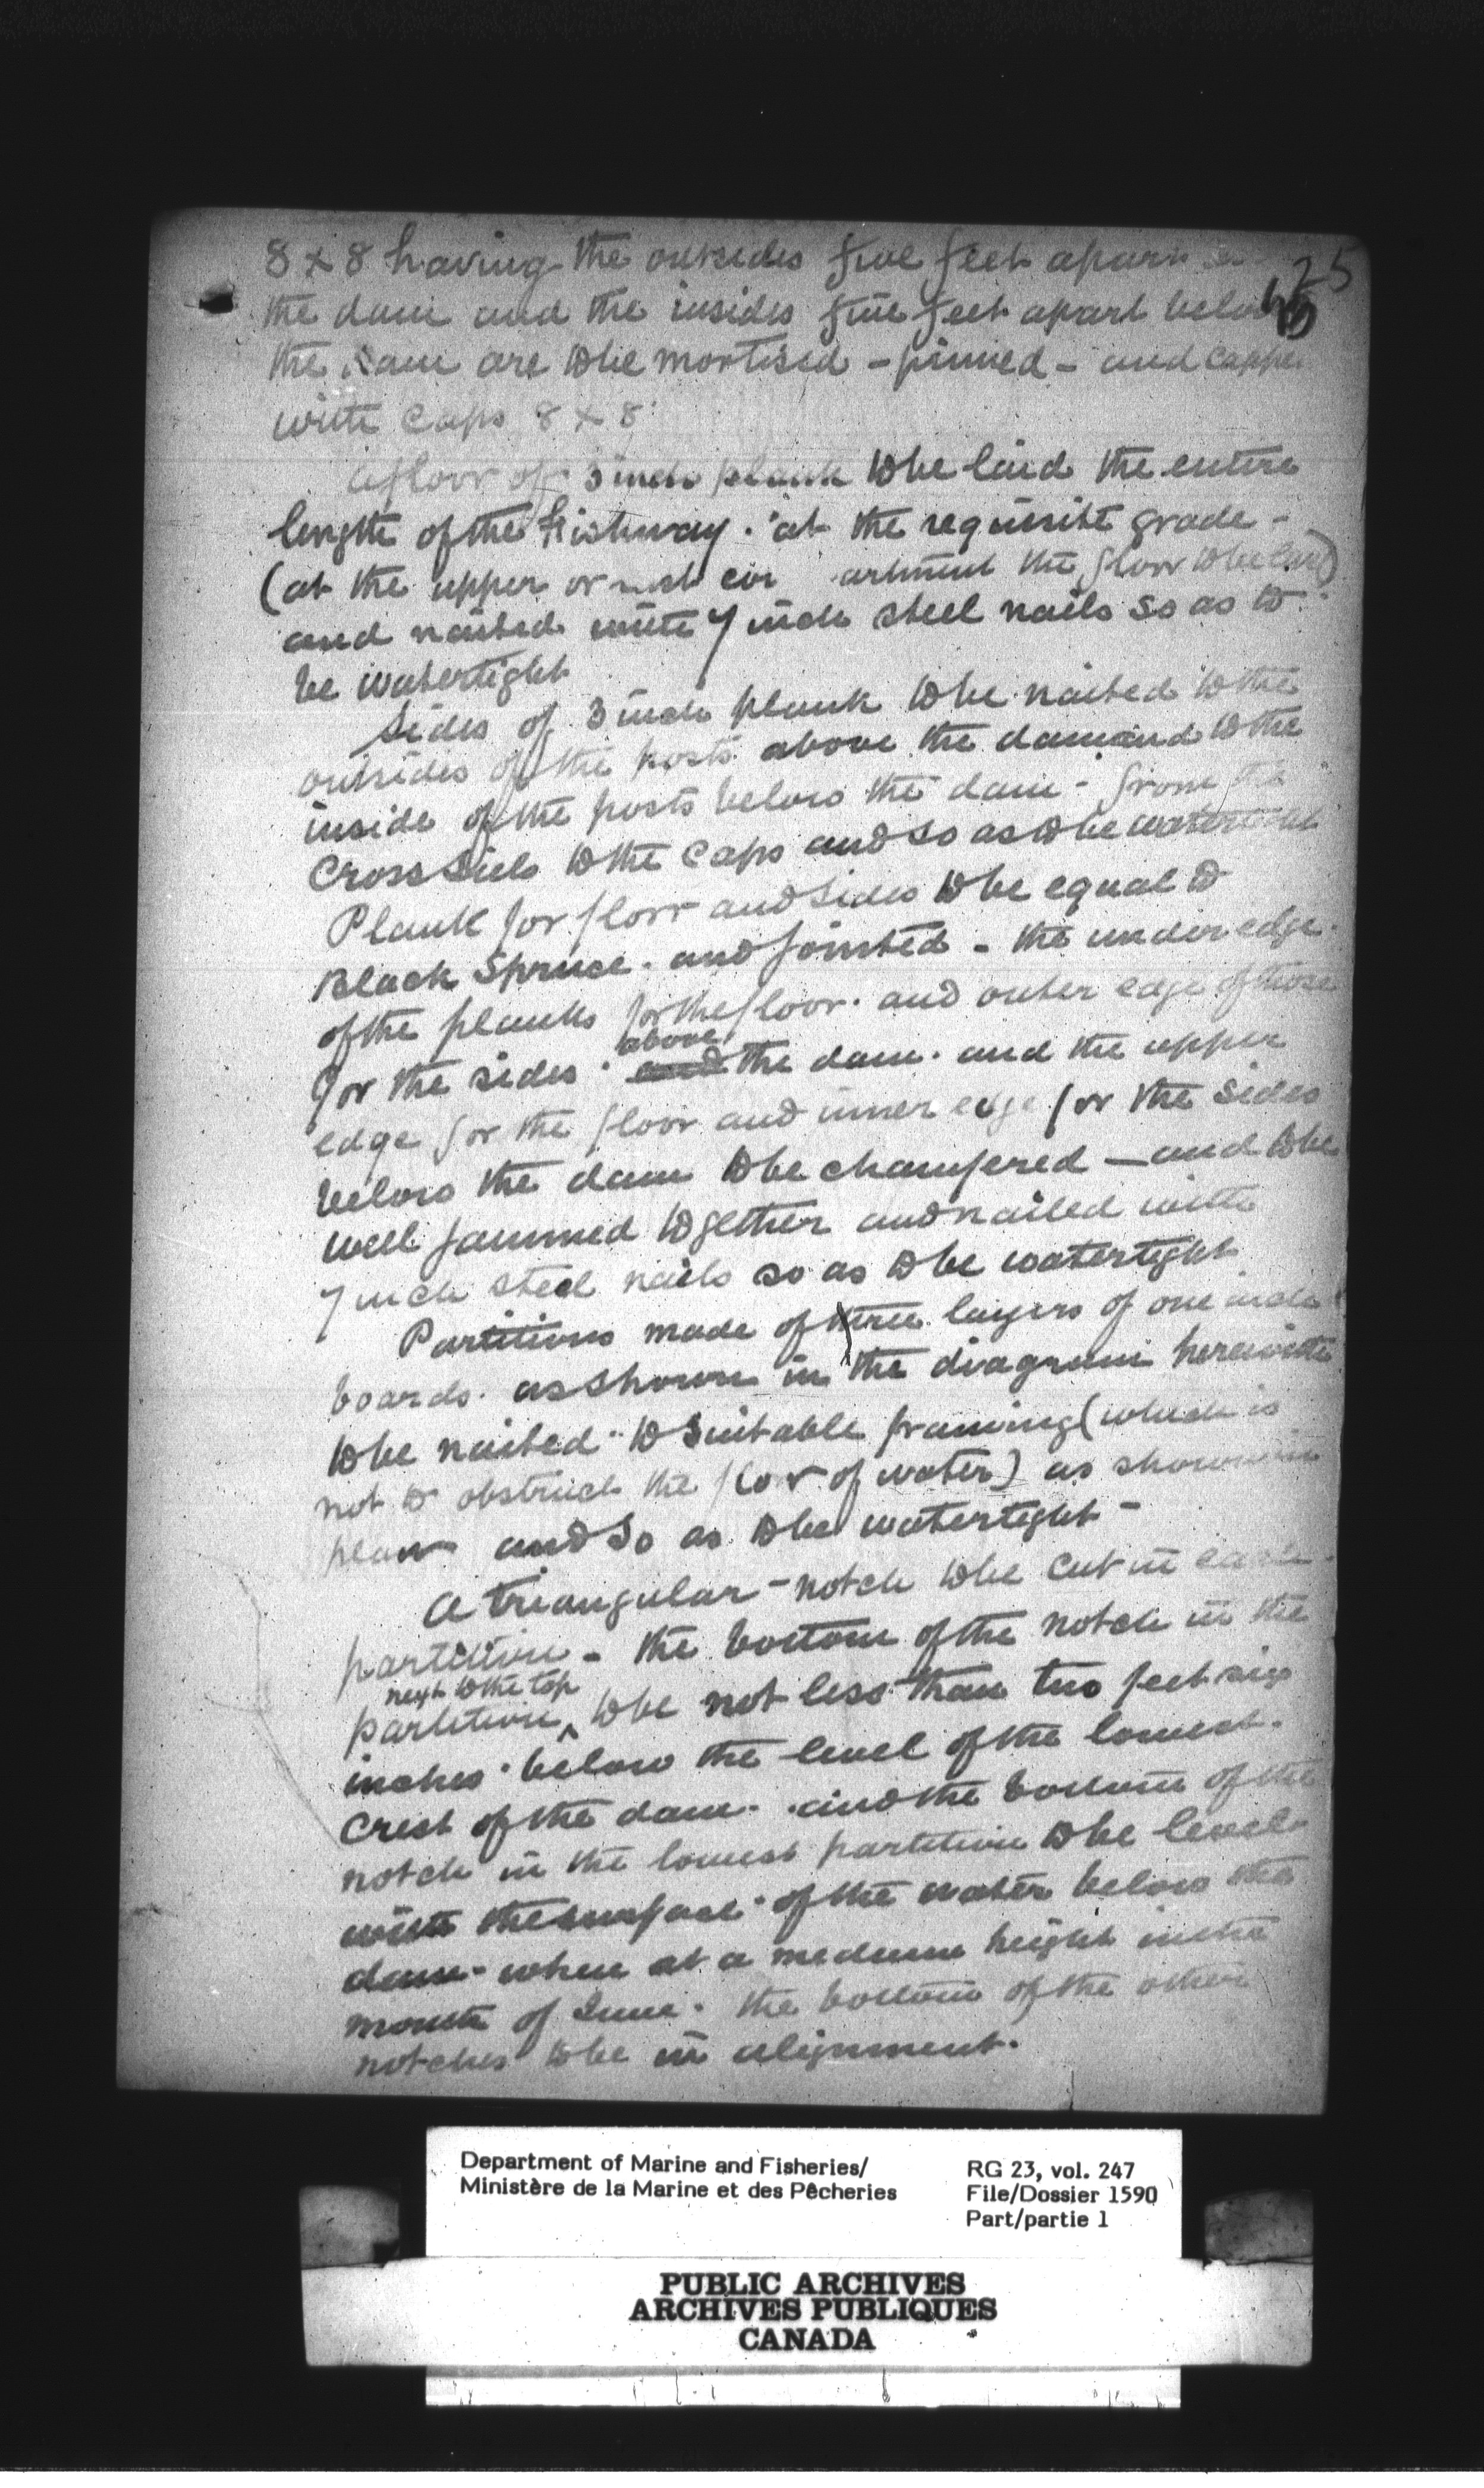 25
8 x 8 having the outsides five feet apart
the dam and the insides five feet apart below
the dam are to be mortised - pinned - and capped
with caps 8 x 8
A floor of 3 inch plank to be laid the entire
length of the Fishway. at the requisite grade -
(at the upper or the floor to be laid)
and nailed with 7 inch steel nails so as to
be watertight
Sides of 3 inch plank to be nailed to the
outsides of the posts above the dam and to the
inside of the posts below the dam - from the
cross sills to the caps and so as to be watertight
Plank for floor and sides to be equal to
Black Spruce. and jointed - the under edge
of the planks for the floor. and outer edge of those
for the sides. above the dam. and the upper
edge for the floor and inner edge for the sides
below the dam to be chamfered — and to be
well jammed together and nailed with
7 inch steel nails so as to be watertight
Partitions made of three layers of one inch
boards. as shown in the diagram herewith
to be nailed to suitable framing (which is
not to obstruct the flow of water) as shown in
plan and so as to be watertight -
A triangular - notch to be cut in each
partition - the bottom of the notch in the
next to the top
partition ^ to be not less than two feet six
inches below the level of the lowest
crest of the dam. and the bottom of the
notch in the lowest partition to be level
with the surface of the water below the
dam - when at a medium height in the
month of June. the bottom of the other
notches to be in alignment.
Department of Marine and Fisheries/
Ministère de la Marine et des Pêcheries
RG 23, vol. 247
File/Dossier 1590
Part/partie 1
PUBLIC ARCHIVES
ARCHIVES PUBLIQUES
CANADA